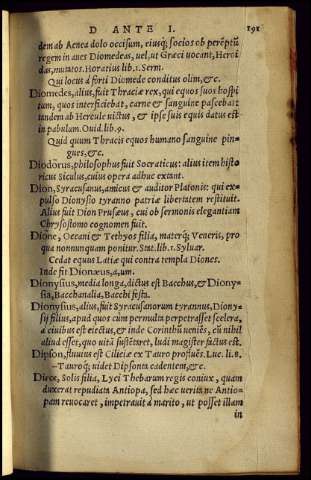 D ANTE I. 191
dem ab Aenea dolo occisum, eiusq́; socios ob perēptū
regem in aues Diomedeas, uel, ut Græci uocant, Heroi
das, mutatos. Horatius lib. 1. Serm.
Qui locus à forti Diomede conditus olim, &c.
Diomedes, alius, fuit Thraciæ rex, qui equos suos hospi
tum, quos interficiebat, carne & sanguine pascebat:
tandem ab Hercule uictus, & ipse suis equis datus est
in pabulum. Ouid. lib. 9.
Quid quum Thracis equos humano sanguine pin-
gues, &c.
Diodōrus, philosophus fuit Socraticus: alius item histo
ricus Siculus, cuius opera adhuc extant.
Dion, Syracusanus, amicus & auditor Platonis: qui ex-
pulso Dionysio tyranno patriæ libertatem restituit.
Alius fuit Dion Prusæus, cui ob sermonis elegantiam
Chrysostomo cognomen fuit.
Dione, Oceani & Tethyos filia, materq́; Veneris, pro
qua nonnunquam ponitur. Stat. lib. 1. Syluar.
Cedat equus Latiæ qui contra templa Diones.
Inde fit Dionæus, a, um.
Dionysius, media longa, dictus est Bacchus, & Diony-
sia, Bacchanalia, Bacchi festa.
Dionysius, alius, fuit Syracusanorum tyrannus, Diony-
sij filius, apud quos cum permulta perpetrasset scelera,
à ciuibus est eiectus, & inde Corinthū ueniēs, cū nihil
aliud esset, quo uitā sustētaret, ludi magister factus est.
Dipson, fluuius est Ciliciæ ex Tauro profluēs. Luc. li. 8.
-Tauroq́; uidet Dipsonta cadentem, &c.
Dirce, Solis filia, Lyci Thebarum regis coniux, quam
duxerat repudiata Antiopa, sed hæc uerita ne Antio-
pam reuocaret, impetrauit à marito, ut posset illam
in